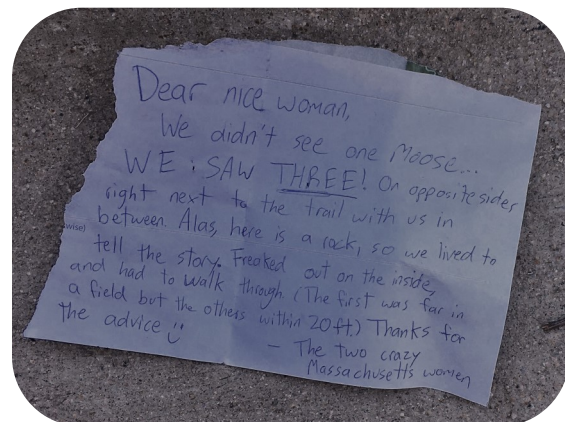 Dear nice woman,
We didn't see one Moose...
WE SAW THREE! On opposite sides
right next to the trail with us in
between. Alas, here is a rock, so we lived to
(wise)
tell the story. Freaked out on the inside
and had to walk through. (The first was far in
a field but the others within 20ft.) Thanks for
the advice :)
- The two crazy
Massachusetts women